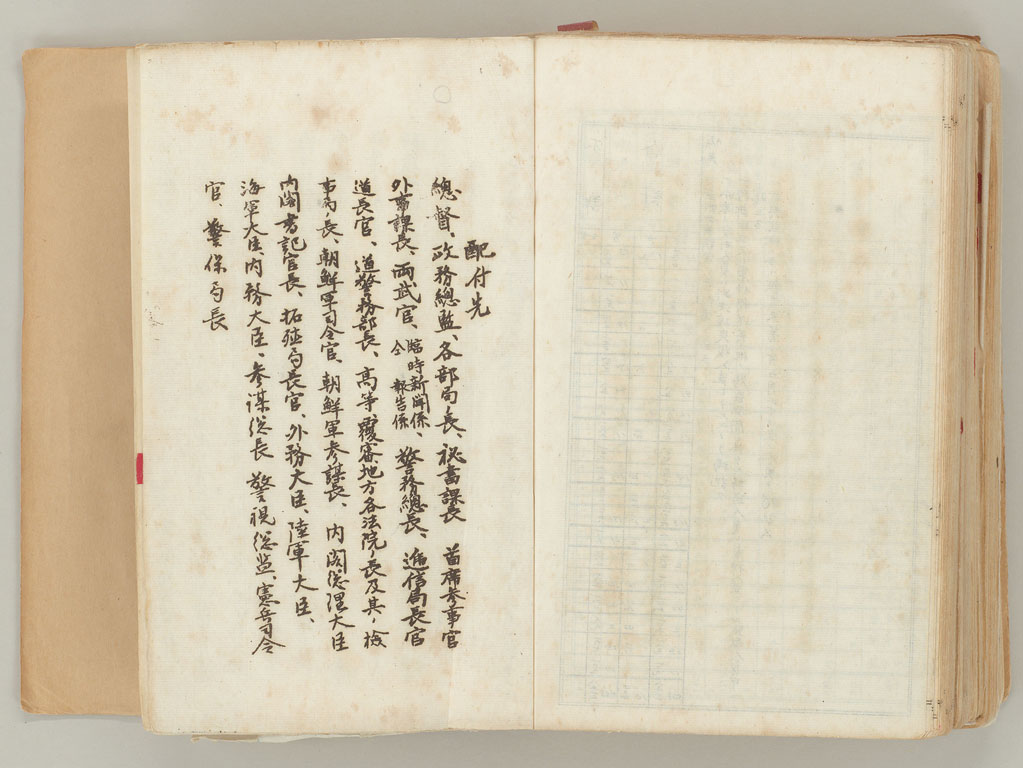 配付先
總督、政務總監、各部局長、秘書課長 首席参事官
外事課長、両武官、臨時新聞係、仝報告係 警務總長、逓信局長官
道長官、道警務部長、高等覆審地方各法院長及其ノ檢
事局長、朝鮮軍司令官、朝鮮軍参謀長、内閣総理大臣
内閣書記官長、拓殖局長官、外務大臣、陸軍大臣、
海軍大臣、内務大臣、参謀総長 警視総監、憲兵司令
官、警保局長